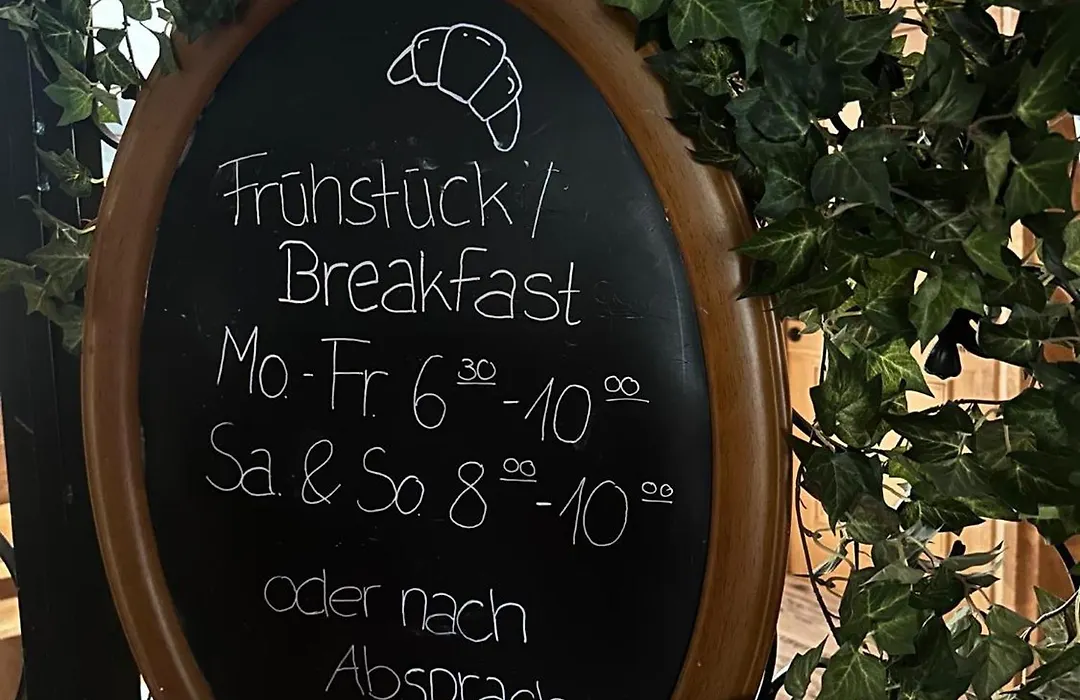 Frühstück /
Breakfast
Mo. - Fr. 6 30 - 10 00
Sa. & So. 8 00 - 10 00
oder nach